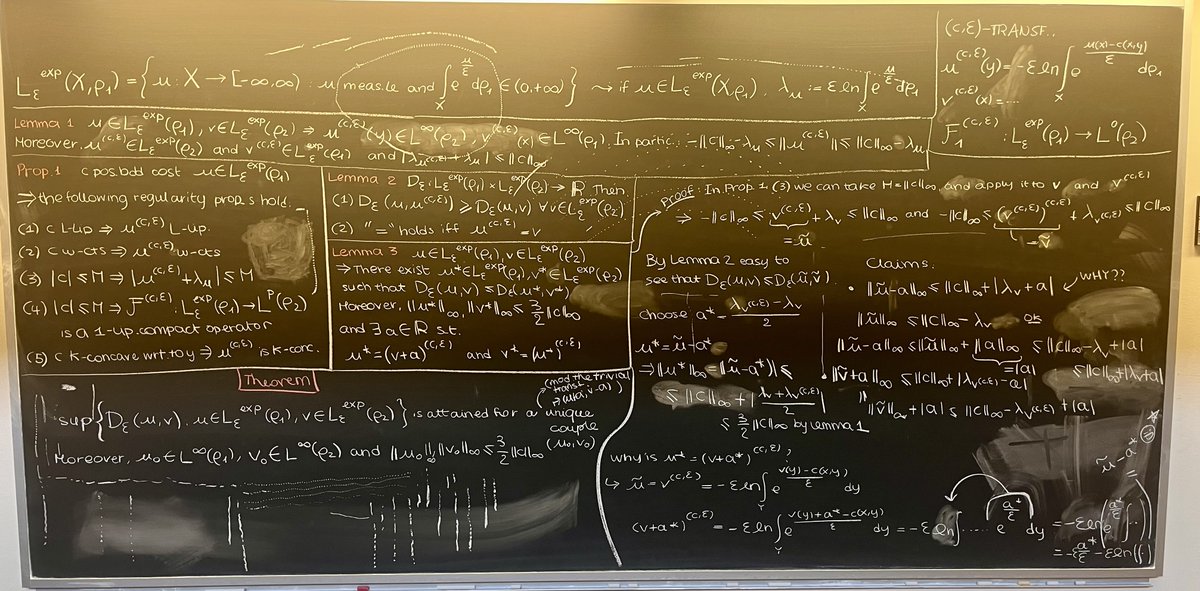 L_ε^exp(X,ρ₁) = { u : X → [-∞,∞) : u meas.le and ∫_X e^{u/ε} dρ₁ ∈ (0,+∞) } ⇝ if u ∈ L_ε^exp(X,ρ₁), λ_u := ε ln ∫_X e^{u/ε} dρ₁
(c,ε)-TRANSF..
u^(c,ε)(y) = -ε ln ∫_X e^{(u(x)-c(x,y))/ε} dρ₁
v^(c,ε)(x) = ...
F₁^(c,ε) : L_ε^exp(ρ₁) → L⁰(ρ₂)
Lemma 1 u∈L_ε^exp(ρ₁), v∈L_ε^exp(ρ₂) ⇒ u^(c,ε)(y)∈L^∞(ρ₂), v^(c,ε)(x)∈L^∞(ρ₁). In partic.: -‖c‖∞-λ_u ≤ ‖u^(c,ε)‖ ≤ ‖c‖∞-λ_u
Moreover, u^(c,ε)∈L_ε^exp(ρ₂) and v^(c,ε)∈L_ε^exp(ρ₁) and |λ_{u^(c,ε)}+λ_u| ≤ ‖c‖∞
Prop.1 c pos.bdd cost u∈L_ε^exp(ρ₁)
⇒ the following regularity prop.s hold.
(1) c L-up. ⇒ u^(c,ε) L-up.
(2) c w-cts ⇒ u^(c,ε) w-cts
(3) |c|≤M ⇒ |u^(c,ε)+λ_u| ≤ M
(4) |c|≤M ⇒ F^(c,ε) : L_ε^exp(ρ₁) → L^p(ρ₂)
is a 1-up.compact operator
(5) c k-concave wrt to y ⇒ u^(c,ε) is k-conc.
Lemma 2 D_ε : L_ε^exp(ρ₁) × L_ε^exp(ρ₂) → ℝ. Then,
(1) D_ε(u,u^(c,ε)) ≥ D_ε(u,v) ∀v∈L_ε^exp(ρ₂)
(2) "=" holds iff u^(c,ε) = v
Lemma 3 u∈L_ε^exp(ρ₁), v∈L_ε^exp(ρ₂)
⇒ There exist u*∈L_ε^exp(ρ₁), v*∈L_ε^exp(ρ₂)
such that D_ε(u,v) ≤ D_ε(u*,v*)
Moreover, ‖u*‖∞, ‖v*‖∞ ≤ 3/2 ‖c‖∞
and ∃a∈ℝ s.t.
u* = (v+a)^(c,ε) and v* = (u*)^(c,ε)
Theorem
(mod the trivial
transl.
sup{ D_ε(u,v), u∈L_ε^exp(ρ₁), v∈L_ε^exp(ρ₂) } is attained for a unique
couple
(u₀,v₀)
Moreover, u₀∈L^∞(ρ₁), v₀∈L^∞(ρ₂) and ‖u₀‖∞, ‖v₀‖∞ ≤ 3/2 ‖c‖∞
Proof: In Prop.1 (3) we can take M=‖c‖∞ and apply it to v and v^(c,ε)
⇒ -‖c‖∞ ≤ v^(c,ε) + λ_v ≤ ‖c‖∞ and -‖c‖∞ ≤ (v^(c,ε))^(c,ε) + λ_{v^(c,ε)} ≤ ‖c‖∞
= ũ
= ṽ
By Lemma 2 easy to
see that D_ε(u,v) ≤ D_ε(ũ,ṽ)
Choose a* = (λ_{v^(c,ε)} - λ_v)/2
u* = ũ - a*
⇒ ‖u*‖∞ = ‖ũ-a*‖ ≤
≤ ‖c‖∞ + |(λ_v+λ_{v^(c,ε)})/2|
≤ 3/2 ‖c‖∞ by lemma 1
Claims.
• ‖ũ-a‖∞ ≤ ‖c‖∞ + |λ_v+a| ← WHY??
‖ũ‖∞ ≤ ‖c‖∞ - λ_v ok
‖ũ-a‖∞ ≤ ‖ũ‖∞ + ‖a‖∞ ≤ ‖c‖∞ - λ_v + |a|
= |a|
≤ ‖c‖∞ + |λ_v+a|
• ‖ṽ+a‖∞ ≤ ‖c‖∞ + |λ_{v^(c,ε)} - a|
‖ṽ‖∞ + |a| ≤ ‖c‖∞ - λ_{v^(c,ε)} + |a|
why is u* = (v+a*)^(c,ε) ?
↳ ũ = v^(c,ε) = -ε ln ∫_Y e^{(v(y)-c(x,y))/ε} dy
(v+a*)^(c,ε) = -ε ln ∫_Y e^{(v(y)+a*-c(x,y))/ε} dy = -ε ln ∫ ... e^{a*/ε} dy = -ε ln e^{a*/ε} (...
= -ε a*/ε - ε ln(∫.
= ũ - a*